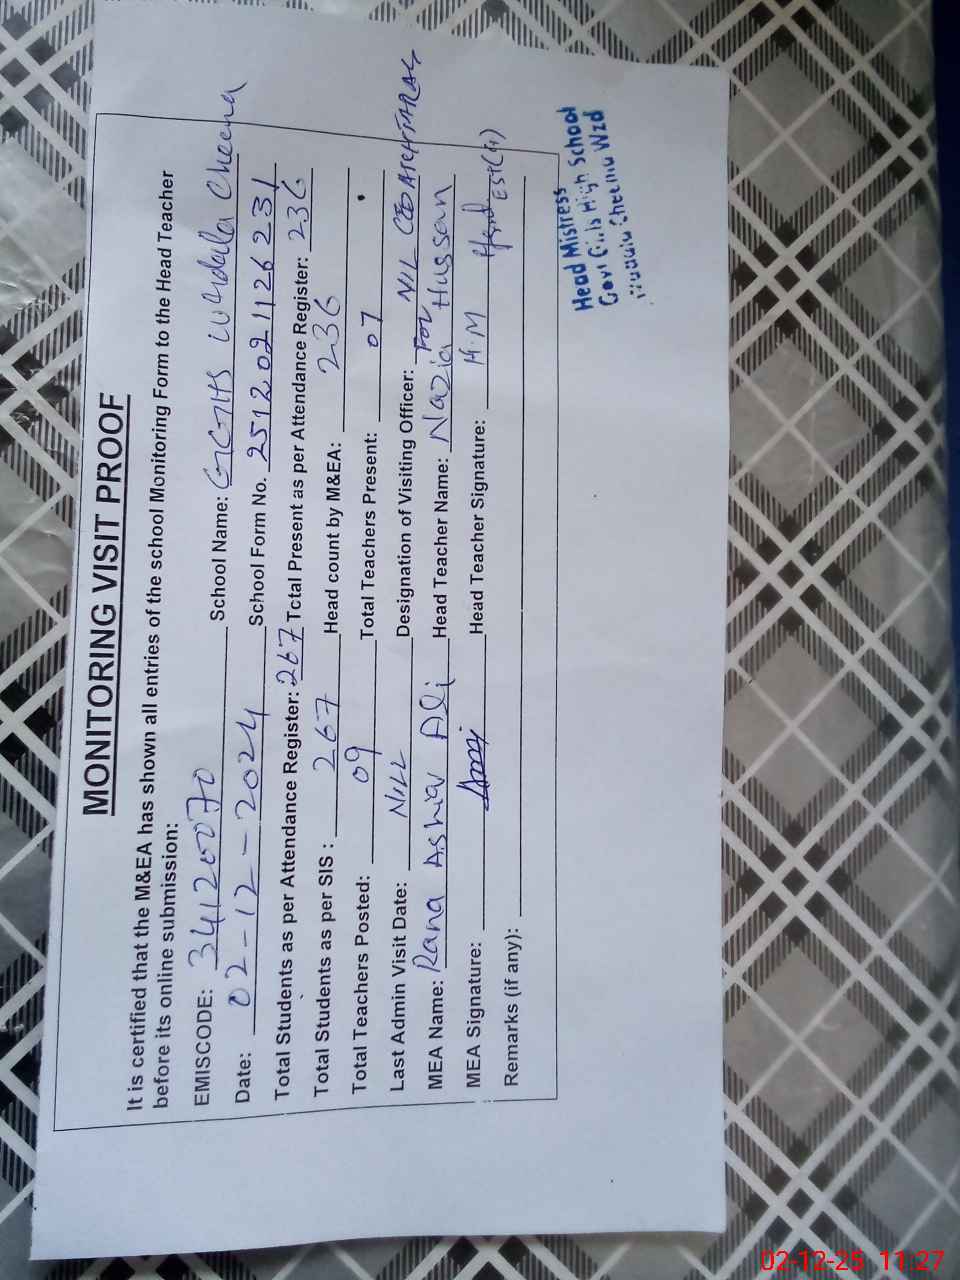 MONITORING VISIT PROOF
It is certified that the M&EA has shown all entries of the school Monitoring Form to the Head Teacher
before its online submission:
EMISCODE: 34120070 School Name: GGHS Wadala Cheema
Date: 02-12-2024 School Form No. 2512021126231
Total Students as per Attendance Register: 267 Total Present as per Attendance Register: 236
Total Students as per SIS : 267 Head count by M&EA: 236
Total Teachers Posted: 09 Total Teachers Present: 07
Last Admin Visit Date: NILL Designation of Visiting Officer: NIL
MEA Name: Rana Ashiq Ali Head Teacher Name: Nazia Hussan
MEA Signature: Head Teacher Signature: H.M
Remarks (if any):
Head Mistress
Govt Girls High School
Cheema Wzd
02-12-25 11:27